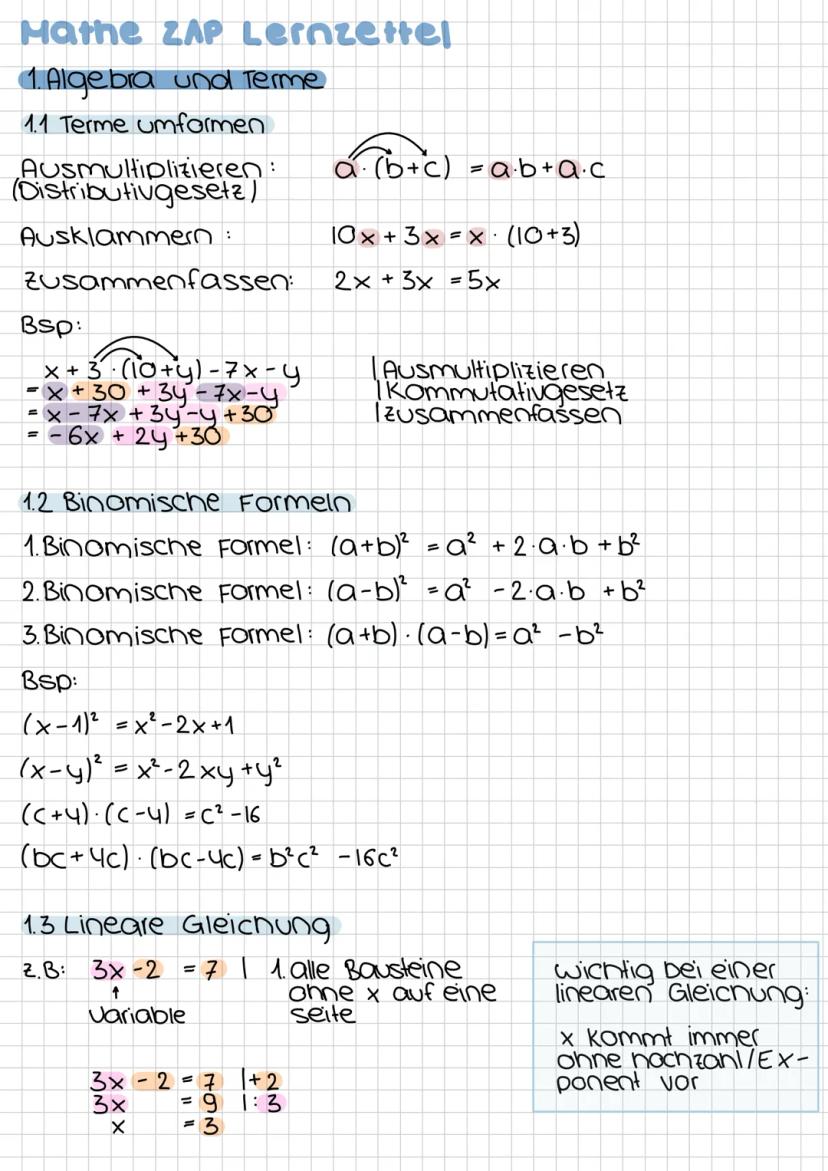 Mathe ZAP Lernzettel
1. Algebra und Terme
1.1 Terme umformen
Ausmultiplizieren: a·(b+c) = a·b+a·c
(Distributivgesetz)
Ausklammern: 10x + 3x = x · (10+3)
Zusammenfassen: 2x + 3x = 5x
Bsp:
x + 3·(10+y) - 7x - y | Ausmultiplizieren
= x + 30 + 3y - 7x - y | Kommutativgesetz
= x - 7x + 3y - y + 30 | Zusammenfassen
= -6x + 2y + 30
1.2 Binomische Formeln
1. Binomische Formel: (a+b)² = a² + 2·a·b + b²
2. Binomische Formel: (a-b)² = a² - 2·a·b + b²
3. Binomische Formel: (a+b)·(a-b) = a² - b²
Bsp:
(x-1)² = x² - 2x + 1
(x-y)² = x² - 2xy + y²
(c+4)·(c-4) = c² - 16
(bc+4c)·(bc-4c) = b²c² - 16c²
1.3 Lineare Gleichung
z.B: 3x - 2 = 7 | 1. alle Bausteine
ohne x auf eine
Seite
↑
Variable
3x - 2 = 7 |+2
3x = 9 |:3
x = 3
wichtig bei einer
linearen Gleichung:
x kommt immer
ohne hochzahl/Ex-
ponent vor